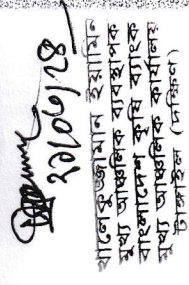 ২১/০৮/২৪
খালেকুজ্জামান ইয়ামিন
মুখ্য আঞ্চলিক ব্যবস্থাপক
বাংলাদেশ কৃষি ব্যাংক
মুখ্য আঞ্চলিক কার্যালয়
টাঙ্গাইল (দক্ষিণ)